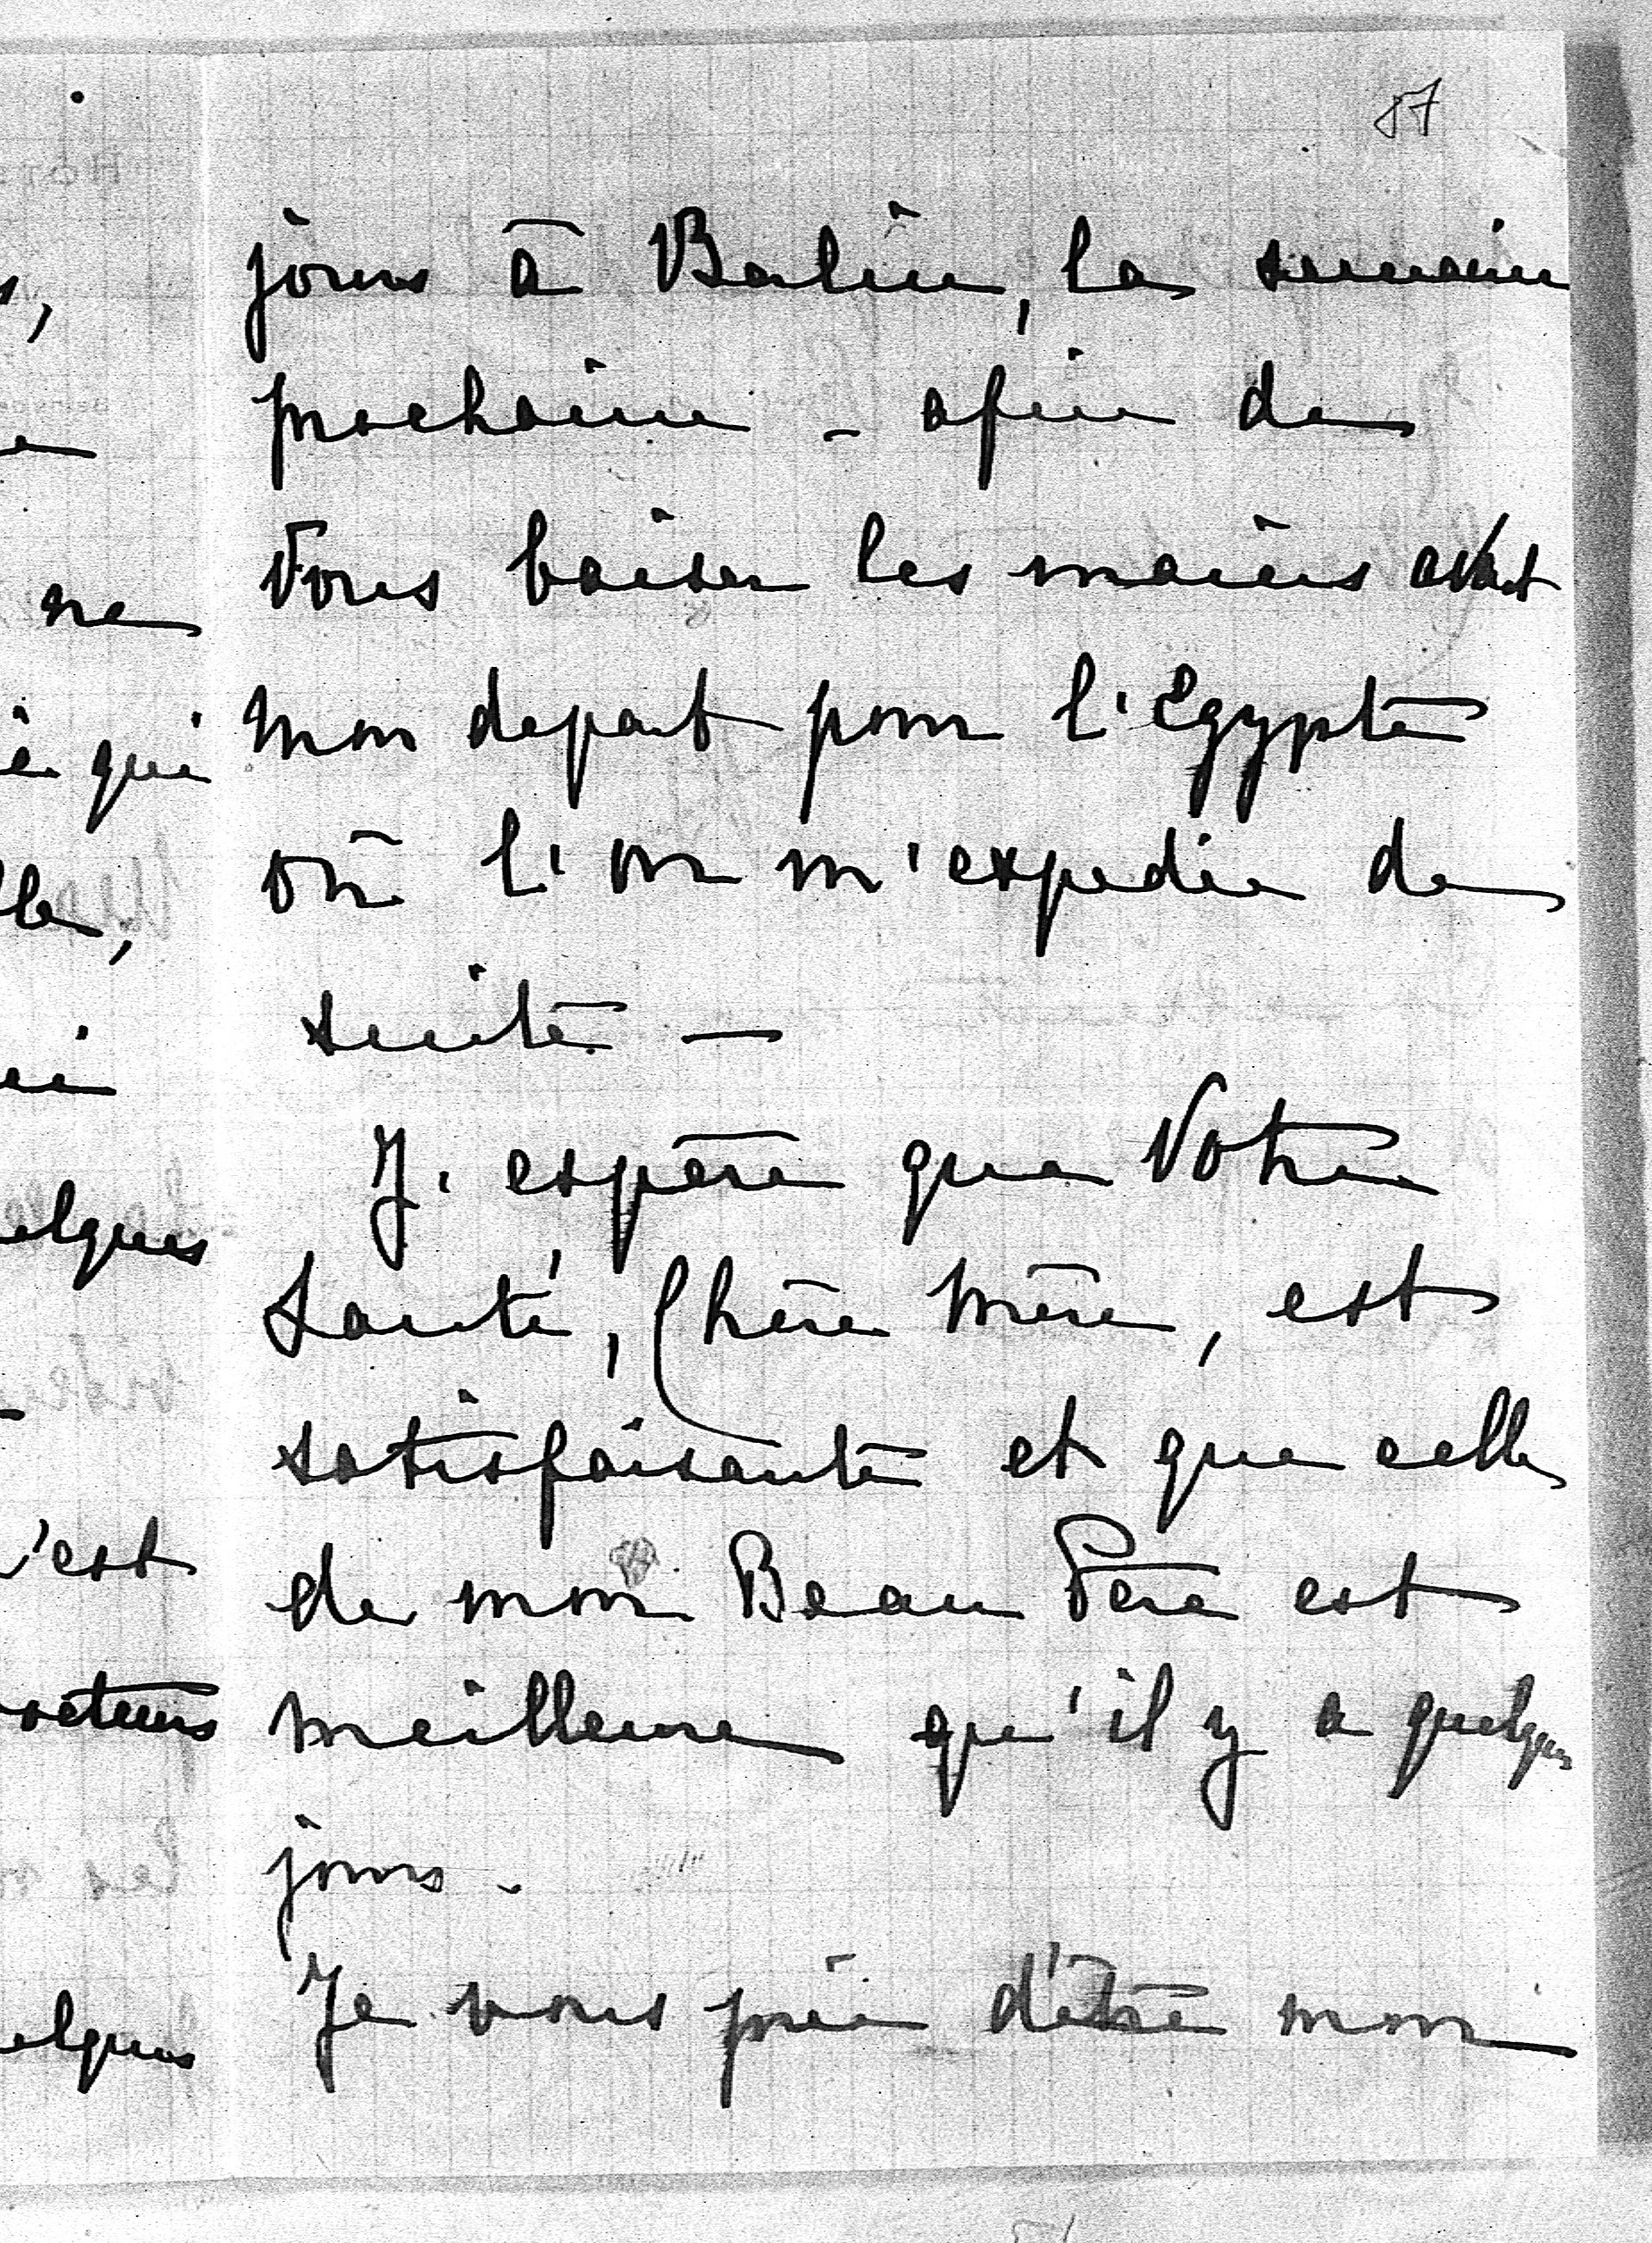 87
jours à Berlin, la semaine
prochaine - afin de
Vous baiser les mains avant
mon depart pour l'Egypte
où l'on m'expedie de
suite —
J'espère que Votre
Santé, Chère Mère, est
satisfaisante et que celle
de mon Beau Père est
meilleure qu'il y a quelques
jours -
Je vous prie d'être mon
s,
ne
qui
elques
'est
elques